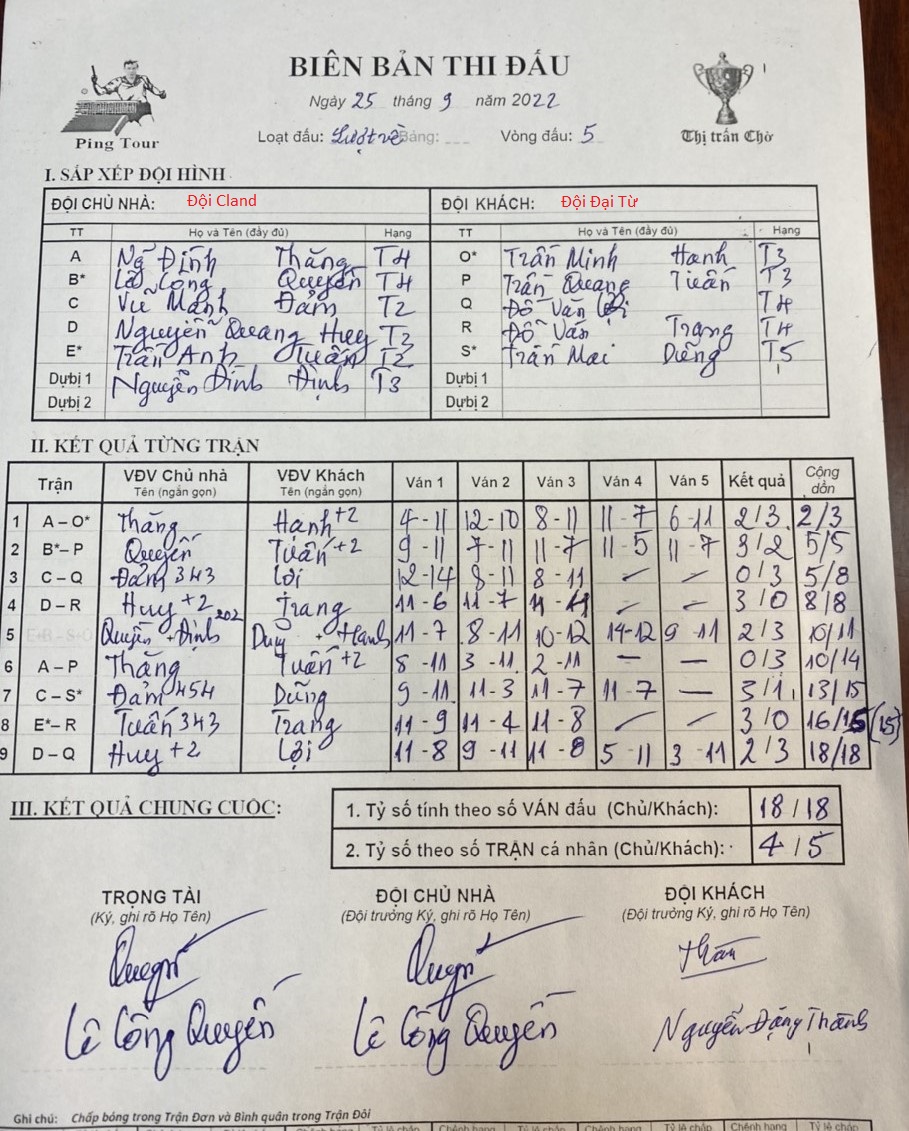 BIÊN BẢN THI ĐẤU
Ping Tour
Ngày 25 tháng 9 năm 2022
Thị trấn Chờ
Loạt đấu: Lượt về Bảng: Vòng đấu: 5
I. SẮP XẾP ĐỘI HÌNH
ĐỘI CHỦ NHÀ: Đội Cland ĐỘI KHÁCH: Đội Đại Từ
TT Họ và Tên (đầy đủ) Hạng TT Họ và Tên (đầy đủ) Hạng
A Ngô Đình Thăng T4 O* Trần Minh Hạnh T3
B* Lê Công Quyền T4 P Trần Quang Tuấn T3
C Vũ Mạnh Đảm T2 Q Đỗ Văn Lợi T4
D Nguyễn Quang Huy T3 R Đỗ Văn Trang T4
E* Trần Anh Tuấn T2 S* Trần Mai Dũng T5
Dự bị 1 Nguyễn Đình Định T3 Dự bị 1
Dự bị 2 Dự bị 2
II. KẾT QUẢ TỪNG TRẬN
Trận VĐV Chủ nhà Tên (ngắn gọn) VĐV Khách Tên (ngắn gọn) Ván 1 Ván 2 Ván 3 Ván 4 Ván 5 Kết quả Cộng dồn
1 A – O* Thăng Hạnh +2 4 - 11 12 - 10 8 - 11 11 - 7 6 - 11 2 / 3 2/3
2 B* – P Quyền Tuấn +2 9 - 11 7 - 11 11 - 7 11 - 5 11 - 7 3 / 2 5/5
3 C – Q Đảm 343 Lợi 12 - 14 8 - 11 8 - 11 – – 0 / 3 5/8
4 D – R Huy +2 Trang 11 - 6 11 - 7 – – 3 / 0 8/8
5 Quyền + Định 202 + Hạnh 11 - 7 8 - 11 10 - 12 14 - 12 9 - 11 2 / 3 10/11
6 A – P Thăng Tuấn +2 8 - 11 3 - 11 2 - 11 – – 0 / 3 10/14
7 C – S* Đảm 454 Dũng 9 - 11 11 - 3 11 - 7 11 - 7 – 3 / 1 13/15
8 E* – R Tuấn 343 Trang 11 - 9 11 - 4 11 - 8 – – 3 / 0 16/15 (15)
9 D – Q Huy +2 Lợi 11 - 8 9 - 11 11 - 8 5 - 11 3 - 11 2 / 3 18/18
III. KẾT QUẢ CHUNG CUỘC:
1. Tỷ số tính theo số VÁN đấu (Chủ/Khách): 18 / 18
2. Tỷ số theo số TRẬN cá nhân (Chủ/Khách): 4 / 5
TRỌNG TÀI ĐỘI CHỦ NHÀ ĐỘI KHÁCH
(Ký, ghi rõ Họ Tên) (Đội trưởng Ký, ghi rõ Họ Tên) (Đội trưởng Ký, ghi rõ Họ Tên)
Lê Công Quyền Lê Công Quyền Nguyễn Đăng Thành
Ghi chú: Chấp bóng trong Trận Đơn và Bình quân trong Trận Đôi